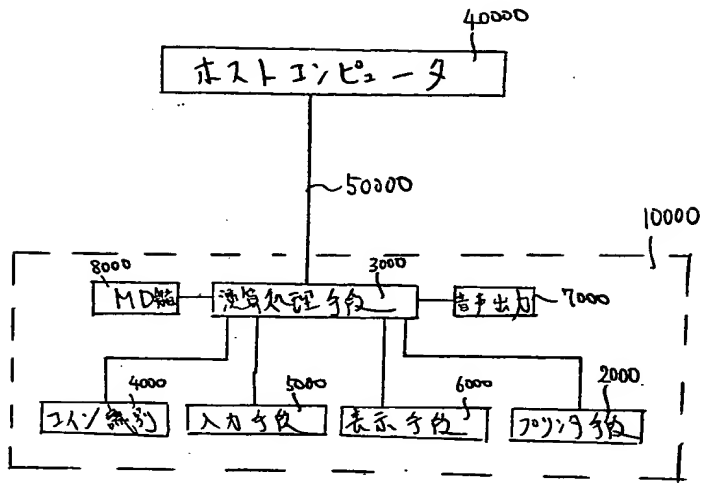 40000
ホストコンピュータ
50000
10000
8000
MD
3000
演算処理手段
音声出力
7000
4000
コイン識別
5000
入力手段
6000
表示手段
2000
プリンタ手段